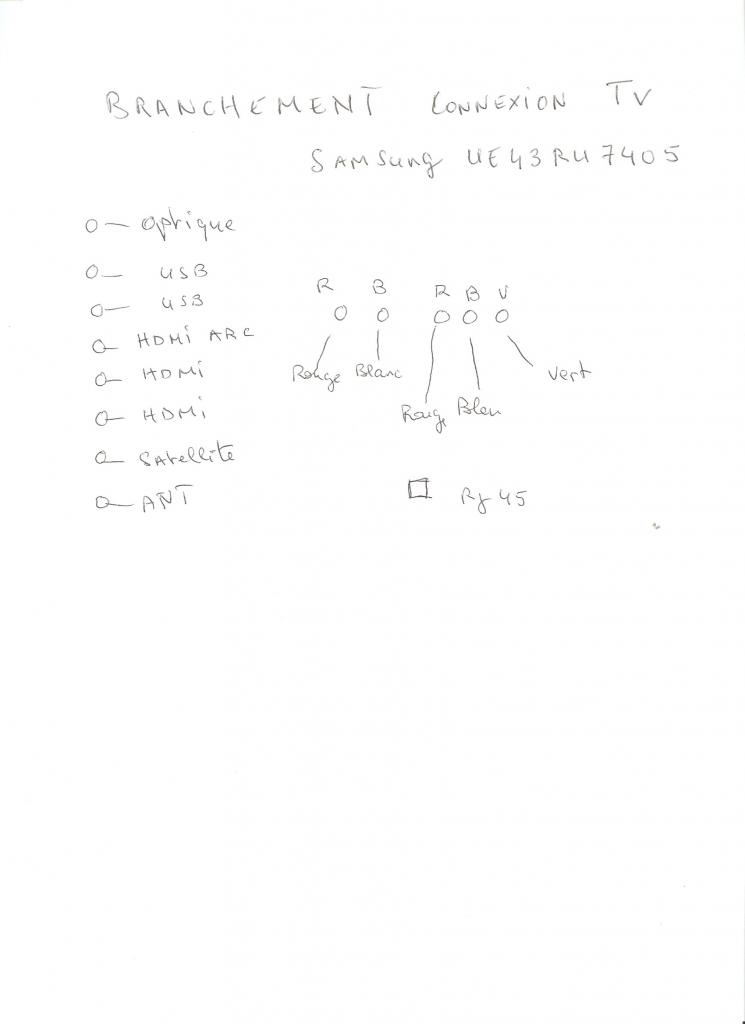 BRANCHEMENT CONNEXION TV
SAMSung UE43RU7405
Optique
USB
USB
HDMi ARC
HDMi
HDMi
SAtellite
ANT
R B R B V
Rouge Blanc
Rouge Bleu
Vert
Rj 45